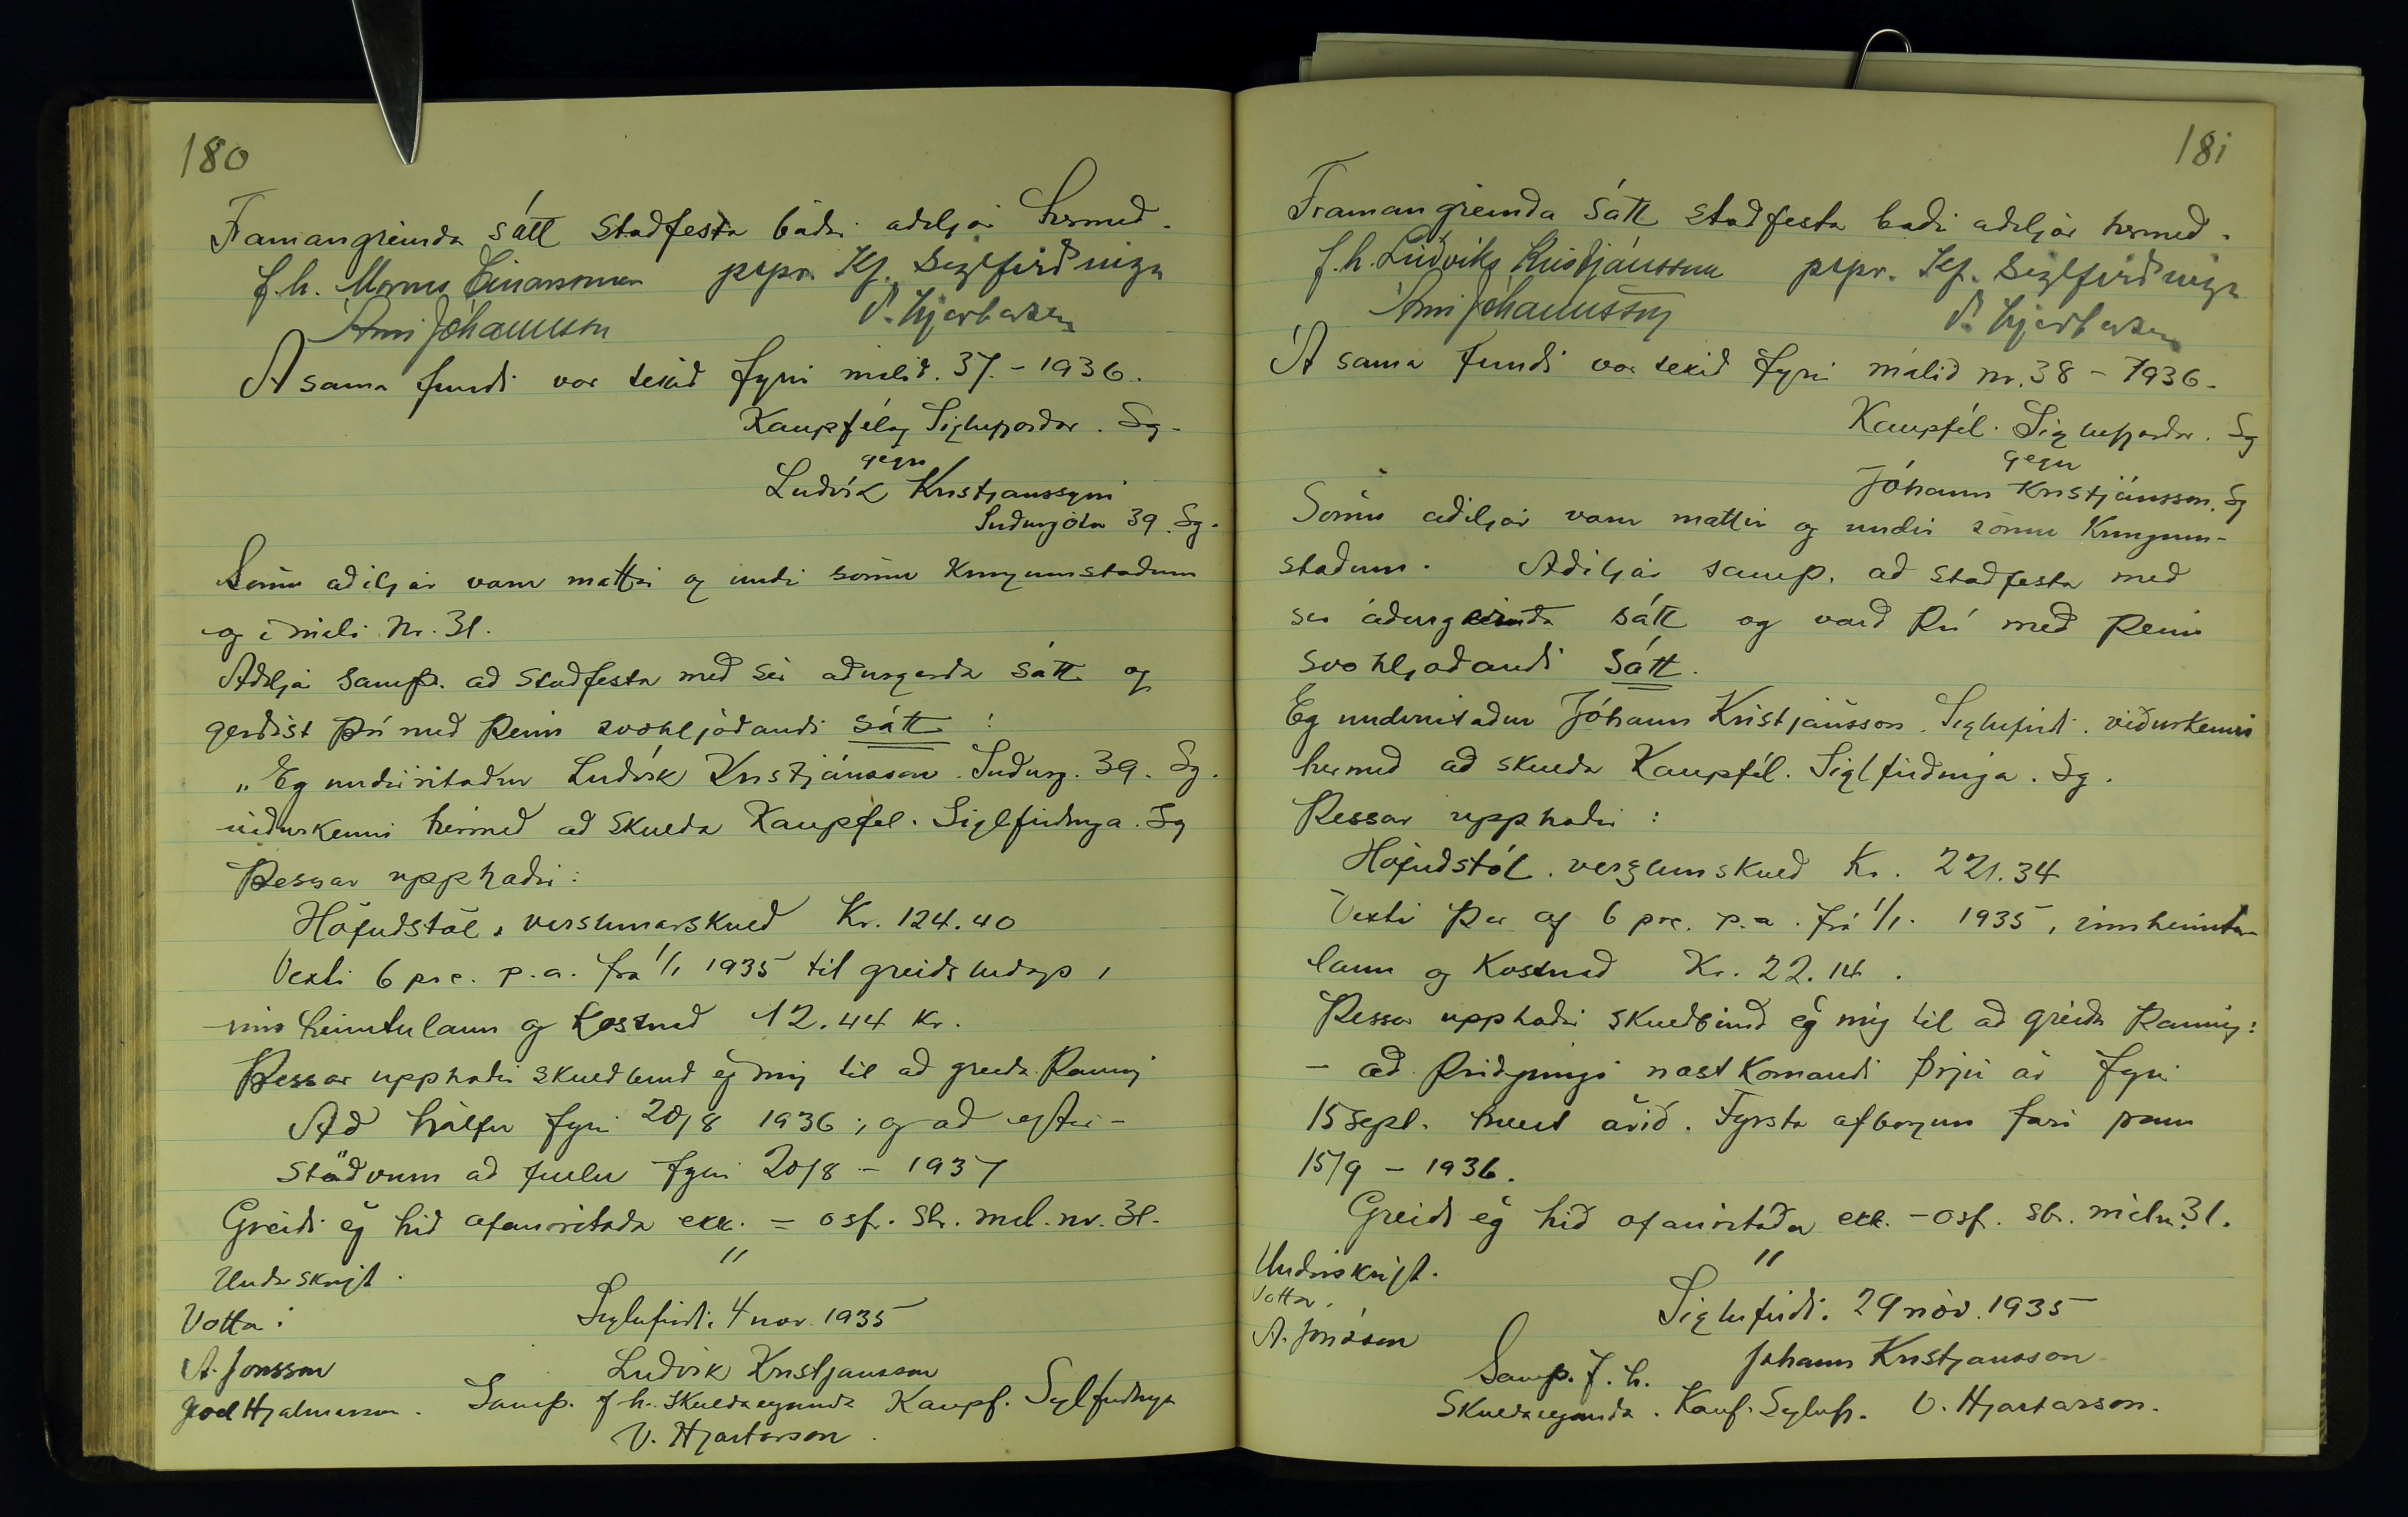 180
Framangreinda sátt staðfesta báðir aðiljar hermeð.
f.h. Einarssonar prpr. Kf. Siglfirðinga
Árni Jóhannsson V. Hjartarson
Á sama fundi var tekið fyrir málið. 37. - 1936.
Kaupfélag Siglufjarðar. Sg.
gegn
Luðvík Kristjanssyni
Suðurgötu 39. Sg.
Sömu aðiljar voru mættir og undir sömu kringumstæðum
og í máli Nr. 31.
Aðiljar samþ. að staðfesta með sér aðurgerða sátt og
gerðist því með þeim svohljóðandi sátt :
„Eg undirritaður Luðvík Kristjánsson. Suðurg. 39. Sg.
viðurkenni hérmeð að skulda Kaupfel. Siglfirðinga. Sg
Þessar upphæðir:
Höfuðstól, verslunarskuld Kr. 124.40
Vexti 6 prc. p.a. frá 1/1 1935 til greiðsludags,
innheimtulaun og kostnað 12.44 kr.
Þessar upphæðir skuldbind eg mig til að greiða Þannig
Að hálfu fyrir 20/8 1936; og að eftir-
stöðvum að fullu fyrir 20/8 - 1937
Greiði ég hið ofanritaða ekk. = osfr. Sbr. mál. nr. 31.
"
Undirskrift.
Votta: Siglufirði. 4 nov. 1935
A. Jonsson Luðvik Kristjansson
Joel Hjalmarsson. Samþ. f h. Skuldareiganda Kaupf. Siglfirðinga
V. Hjartarson.
181
Framangreinda sátt staðfesta baðir aðiljar hermeð.
f.h. Lúðvíks Kristjánssonar prpr. Kf. Siglfirðinga
Árni Jóhannsson V. Hjartarson
Á sama fundi var tekið fyrir málið nr. 38 - 1936.
Kaupfél. Siglufjarðar. Sg
gegn
Jóhann Kristjánsson. Sg
Sömu aðiljar voru mættir og undir sömu Kringum-
stæðum. Aðiljar samþ. að staðfesta með
ser áðurgreinda sátt og varð Því með Þeim
svohljoðandi sátt.
Eg undirritaður Jóhann Kristjánsson. Siglufirði. viðurkenni
hermeð að skulda Kaupfél. Siglfirðinga. Sg.
Þessar upphæðir :
Höfuðstól. verzlunskuld Kr. 221.34
Vexti Þar af 6 prc. p.a. frá 1/1. 1935, innheimtu-
laun og Kostnað Kr. 22.14.
Þessar upphæðir skuldbind ég mig til að greiða Þannig:
- að Þriðjungi næstkomandi þrjú ár fyrir
15 sept. hvert árið. Fyrsta afborgun fari fram
15/9 - 1936.
Greiði ég hið ofanritaða ekk. - osf. sbr. mál nr. 31.
"
Undirskrift.
Vottar. Siglufirði. 29 nóv. 1935
A. Jónsson
Samþ. f. h. Johann Kristjansson
Skuldareiganda. Kauf. Siglufj. V. Hjartarson.